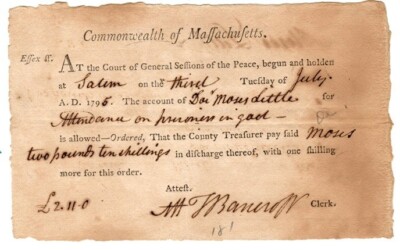 Commonwealth of Massachusetts.
Essex ss.
AT the Court of General Sessions of the Peace, begun and holden
at Salem on the third Tuesday of July
A. D. 1795. The account of Doc Moses Little for
Attendance on prisoners in goal —
is allowed—Ordered, That the County Treasurer pay said Moses
two pounds ten shillings in discharge thereof, with one shilling
more for this order.
Attest.
£2.11.0 Att T Bancroft Clerk.
181